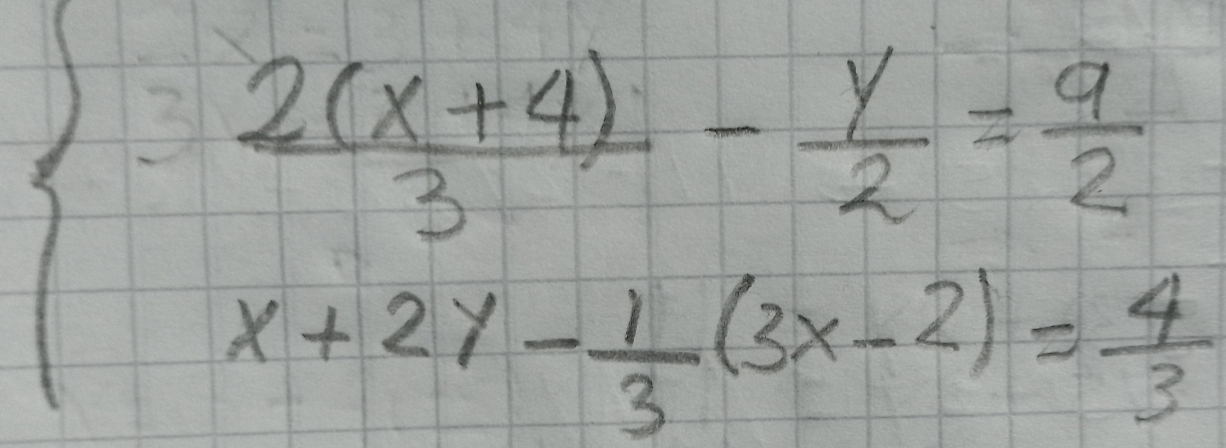 3 2(x+4)/3 - y/2 = 9/2
x + 2y - 1/3 (3x - 2) = 4/3